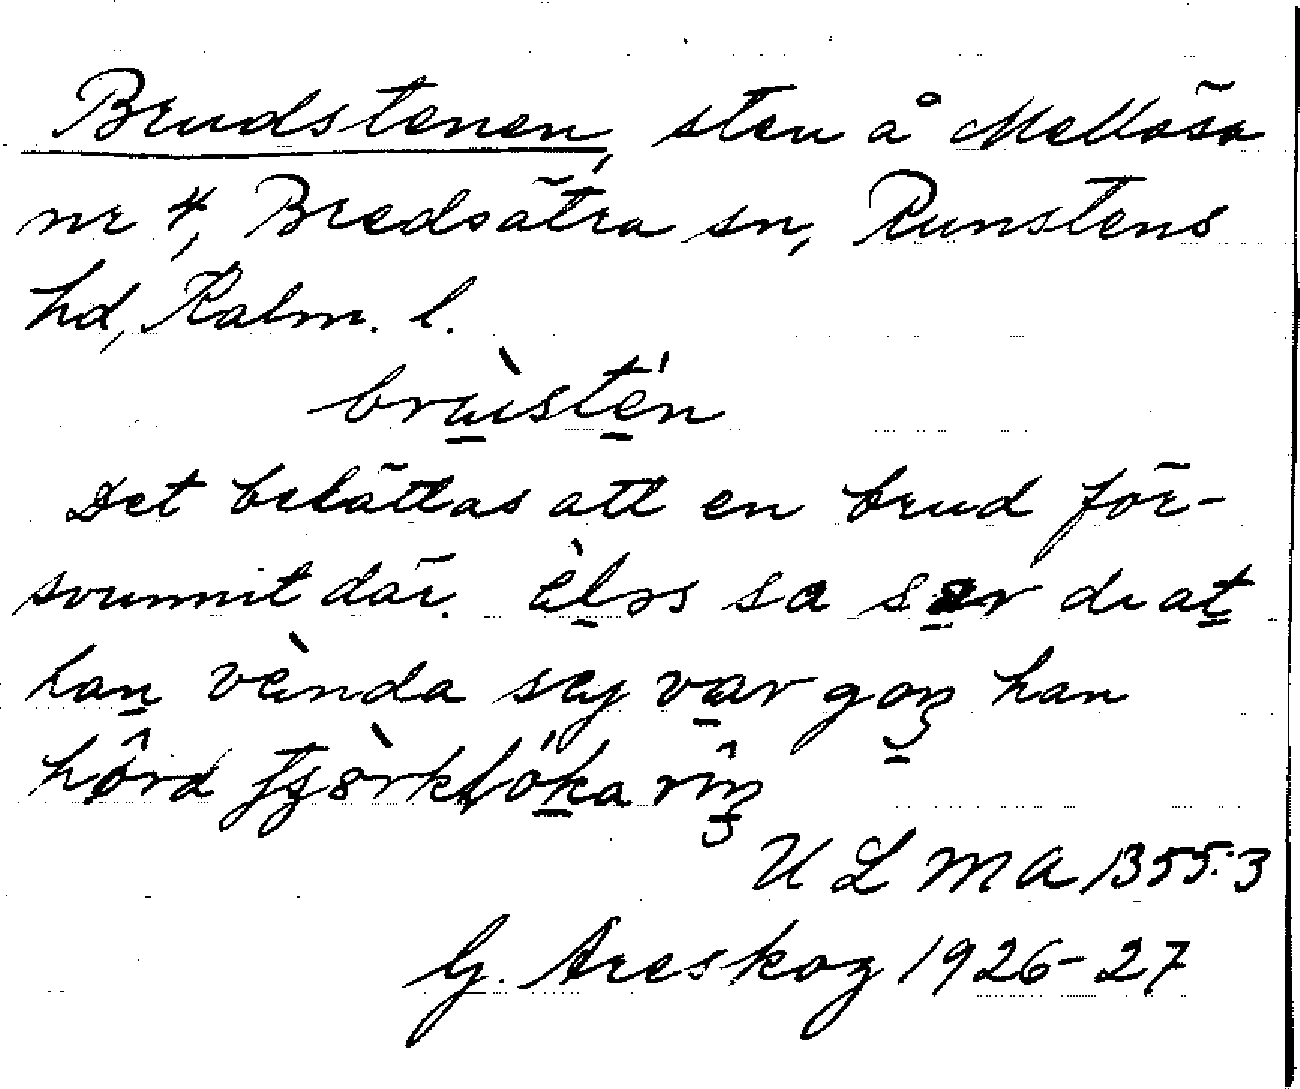 Brudstenen, sten å Mellösa
nr 4, Bredsätra sn, Runstens
hd, Kalm. l.
brùistén
Det berättas att en brud för-
svunnit där. èlrs sa sær di at
han vènda sej var goŋ han
hôrd tjòrkklóka rîŋ
ULMA 1355:3
G. Areskog 1926-27